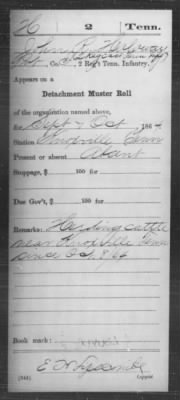 H | 2 | Tenn.
John R.
Pvt., Co. , 2 Reg't Tenn. Infantry.
Appears on a
Detachment Muster Roll
of the organization named above,
for Sept & Oct, 1864
Station Knoxville Tenn
Present or absent Absent
Stoppage, $ 100 for
Due Gov't, $ 100 for
Remarks: Herding cattle
near Knoxville Tenn
since Oct. 9 64
Book mark:
E H Lipscomb
(343) Copyist.